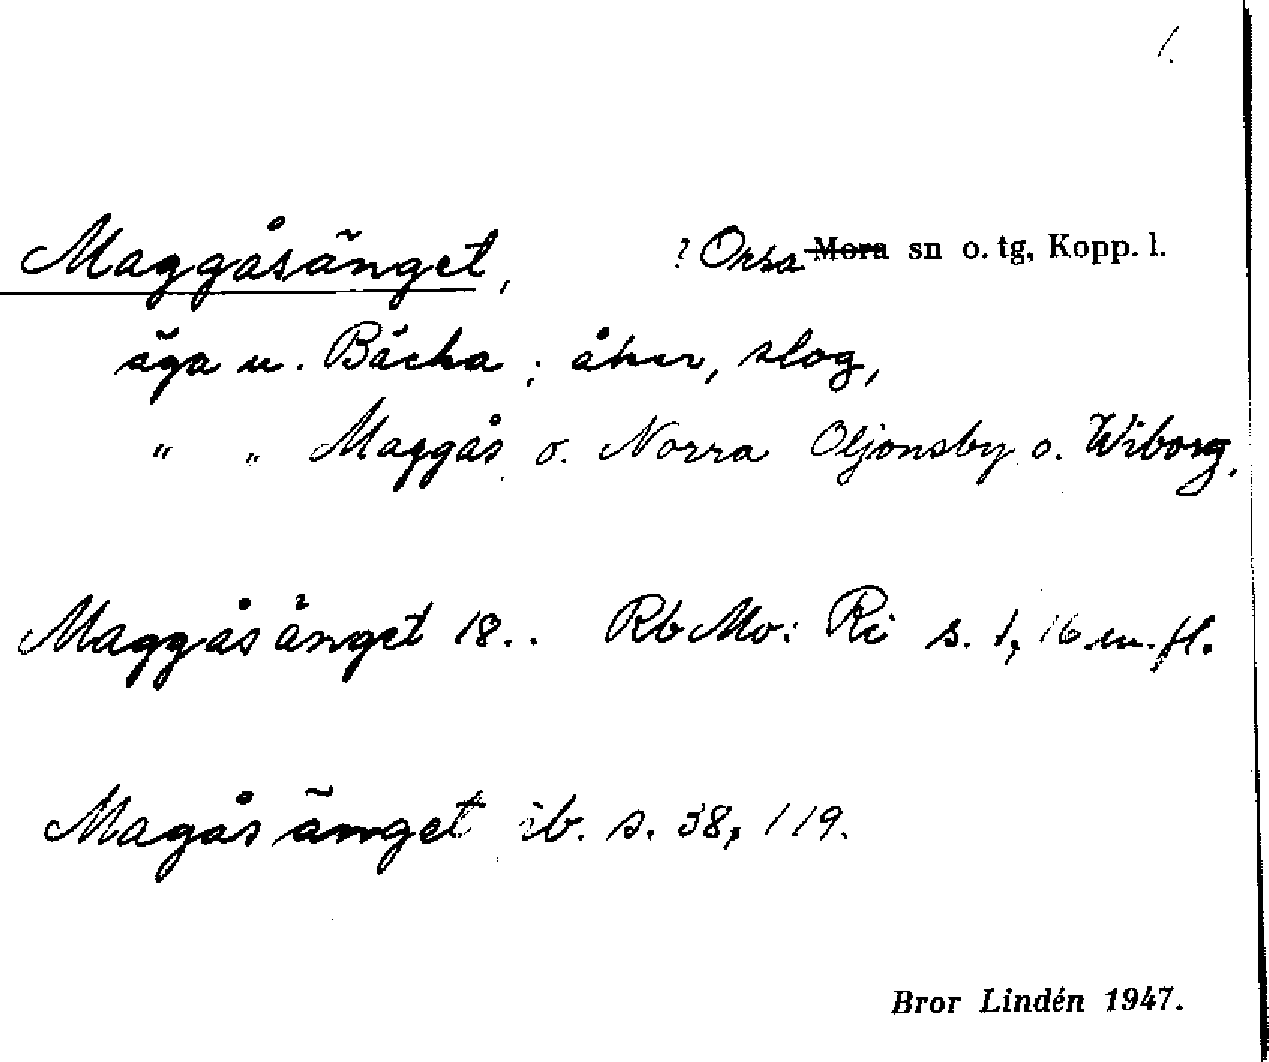 1.
Maggåsänget, ? Orsa Mora sn o. tg, Kopp. l.
äga u. Bäcka; åker, slog,
" " Maggås o. Norra Oljonsby o. Wiborg.
Maggåsänget 18.. Rb Mo: Ri s. 1, 16 m. fl.
Magåsänget ib. s. 38, 119.
Bror Lindén 1947.